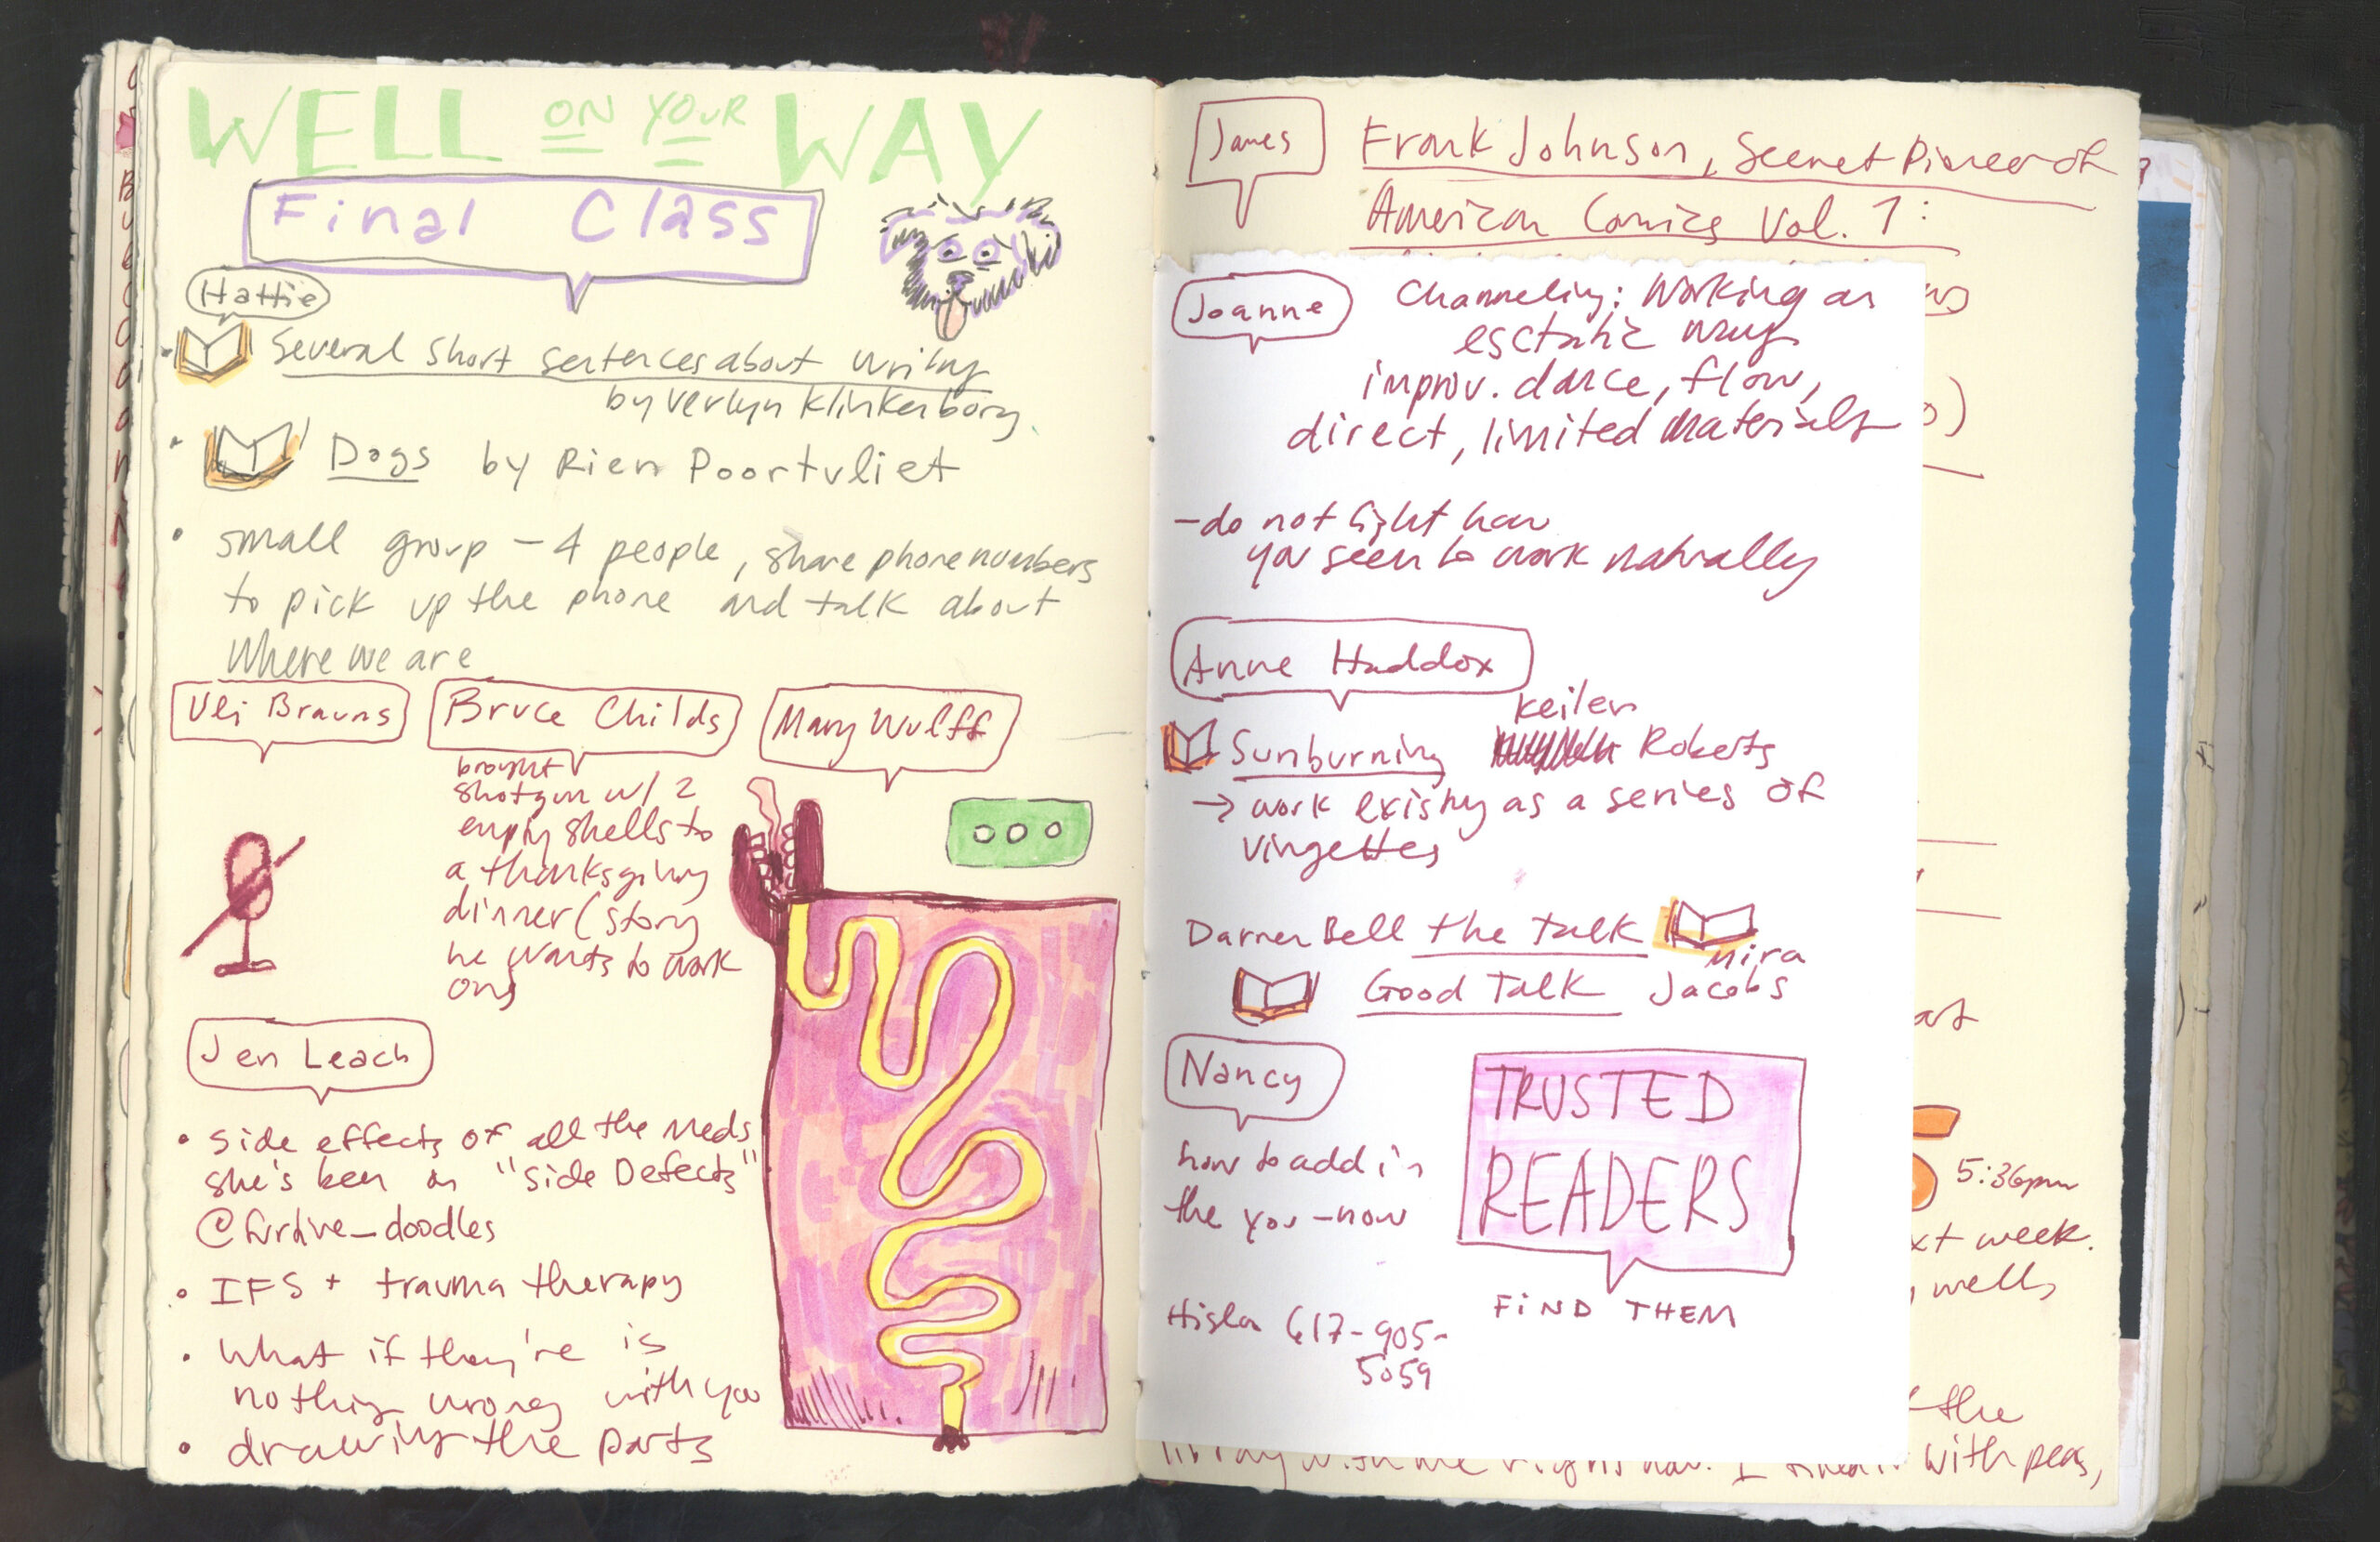 WELL ON YOUR WAY
Final Class
Hattie
Several short sentences about writing
by Verlyn Klinkenborg
Dogs by Rien Poortvliet
• small group – 4 people, share phone numbers
to pick up the phone and talk about
where we are
Uli Brauns
Bruce Childs
brought
shotgun w/ 2
empty shells to
a thanksgiving
dinner (story
he wants to work
on)
Mary Wulff
Jen Leach
• side effects of all the meds
she's been on "Side Defects"
@furtive_doodles
• IFS + trauma therapy
• What if they're is
nothing wrong with you
• drawing the parts
James
Frank Johnson, Secret Pioneer of
American Comics Vol. 1:
Joanne
Channeling: Working an
esctatic way
improv. dance, flow,
direct, limited materials
- do not fight how
you seem to work naturally
Anne Haddox
Keiler
Sunburning Roberts
→ work existing as a series of
vingettes
Darren Bell the Talk
Mira
Good Talk Jacobs
Nancy
how to add in
the you-now
TRUSTED
READERS
FIND THEM
Hisla 617-905-
5059
5:36pm
xt week.
wells
the
library with me right now. I with peas,